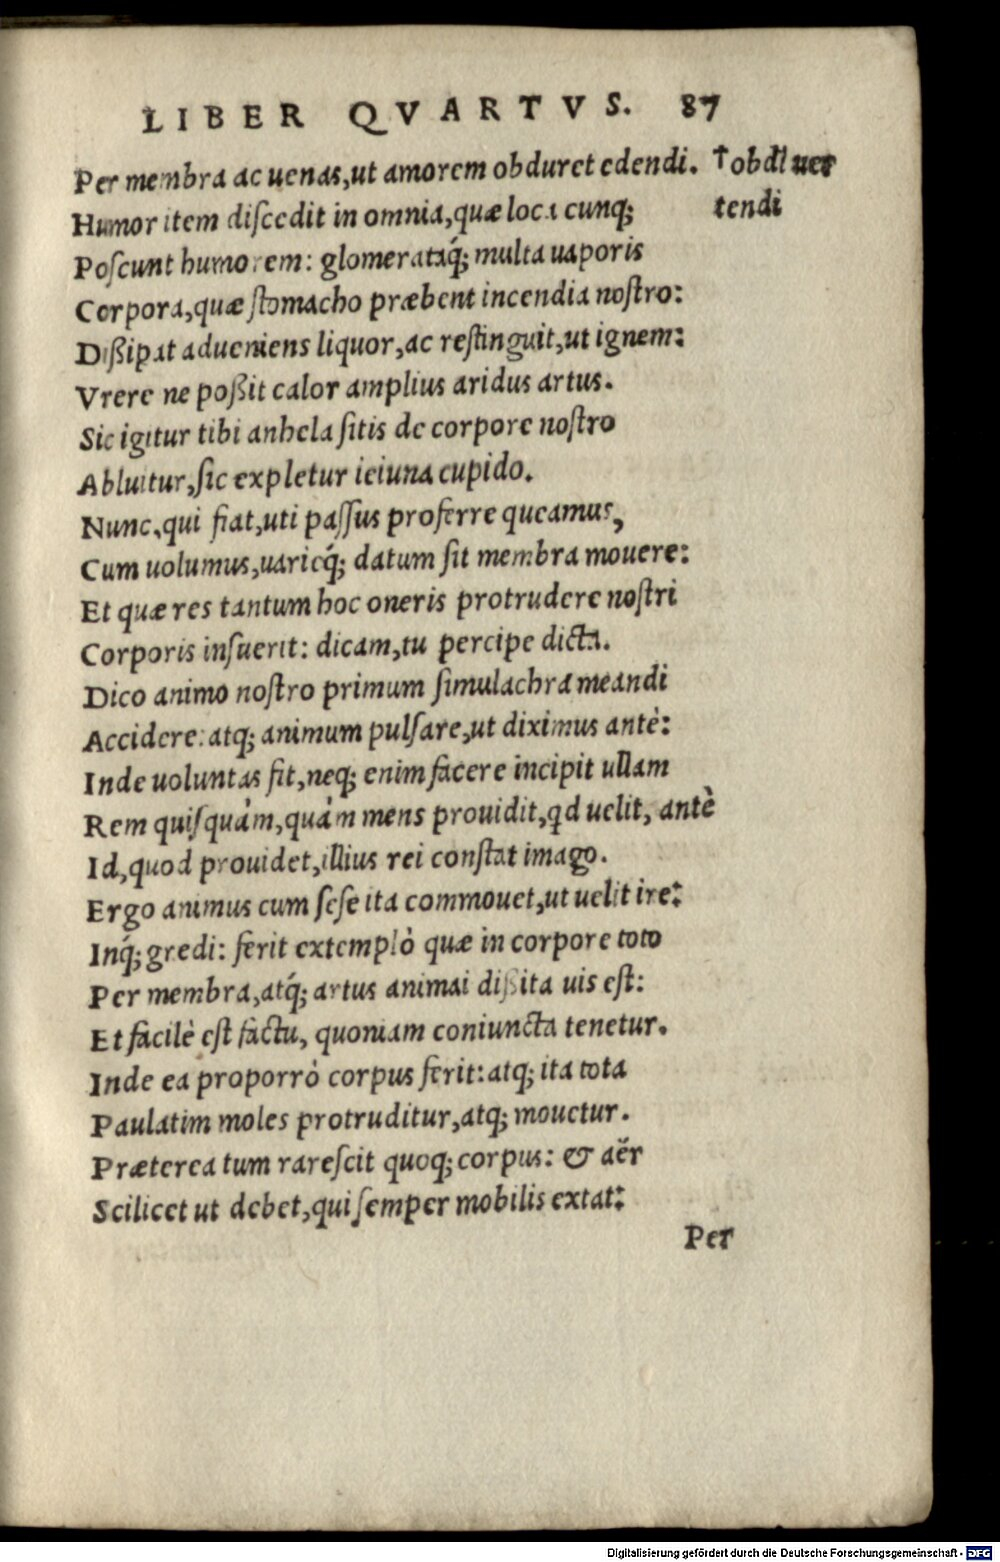 LIBER QVARTVS. 87
Per membra ac uenas, ut amorem obduret edendi. †obdt uer
Humor item diſcedit in omnia, quæ loca cunq; tendi
Poſcunt humorem: glomerataq́; multa uaporis
Corpora, quæ ſtomacho præbent incendia noſtro:
Dißipat adueniens liquor, ac reſtinguit, ut ignem:
Vrere ne poßit calor amplius aridus artus.
Sic igitur tibi anhela ſitis de corpore noſtro
Abluitur, ſic expletur ieiuna cupido.
Nunc, qui fiat, uti paſſus proferre queamus,
Cum uolumus, uarieq́; datum ſit membra mouere:
Et quæ res tantum hoc oneris protrudere noſtri
Corporis inſuerit: dicam, tu percipe dicta.
Dico animo noſtro primum ſimulachra meandi
Accidere: atq; animum pulſare, ut diximus antè:
Inde uoluntas fit, neq; enim facere incipit ullam
Rem quiſquàm, quàm mens prouidit, qd uelit, antè
Id, quod prouidet, illius rei conſtat imago.
Ergo animus cum ſeſe ita commouet, ut uelit ire:
Inq́; gredi: ferit extemplò quæ in corpore toto
Per membra, atq́; artus animai dißita uis eſt:
Et facilè eſt factu, quoniam coniuncta tenetur.
Inde ea proporrò corpus ferit: atq; ita tota
Paulatim moles protruditur, atq; mouetur.
Præterea tum rareſcit quoq; corpus: & aër
Scilicet ut debet, qui ſemper mobilis extat:
Per
Digitalisierung gefördert durch die Deutsche Forschungsgemeinschaft - DFG